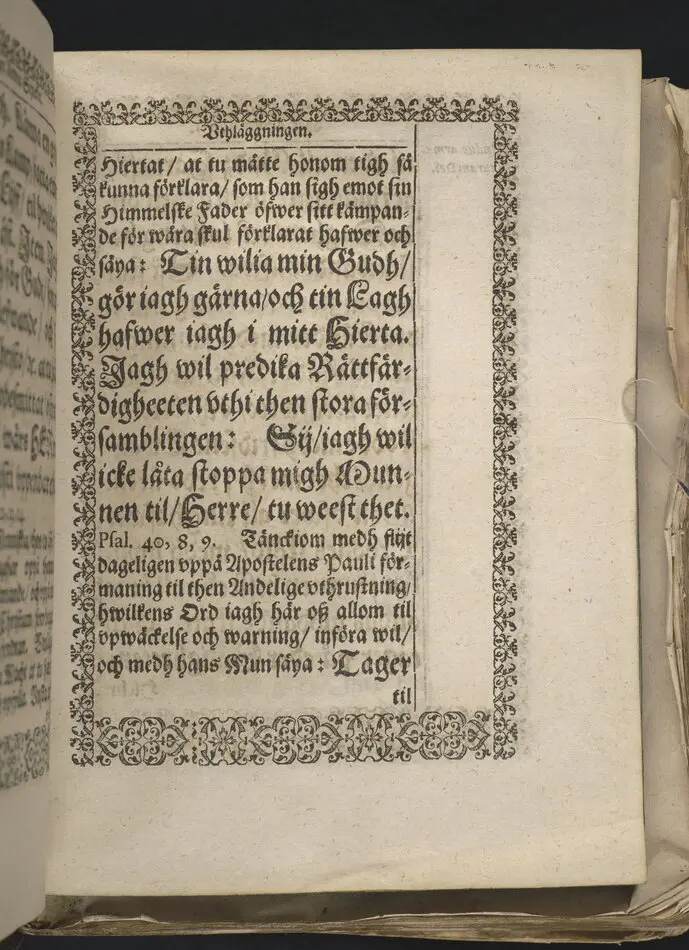 Vthläggningen.
Hiertat/ at tu mätte honom tigh så
kunna förklara/ som han sigh emot sin
Himmelske Fader öfwer sitt kämpan-
de för wåra skul förklarat hafwer och
säya: Tin wilia min Gudh/
gör iagh gärna/och tin Lagh
hafwer iagh i mitt Hierta.
Jagh wil predika Rättfär-
digheeten vthi then stora för-
samblingen: Sij/iagh wil
icke låta stoppa migh Mun-
nen til/Herre/ tu weest thet.
Psal. 40, 8, 9. Tänckiom medh flijt
dageligen vppå Apostelens Pauli för-
maning til then Andelige vthrustning/
hwilkens Ord iagh här oß allom til
vpwäckelse och warning/ införa wil/
och medh hans Mun säya: Tager
til